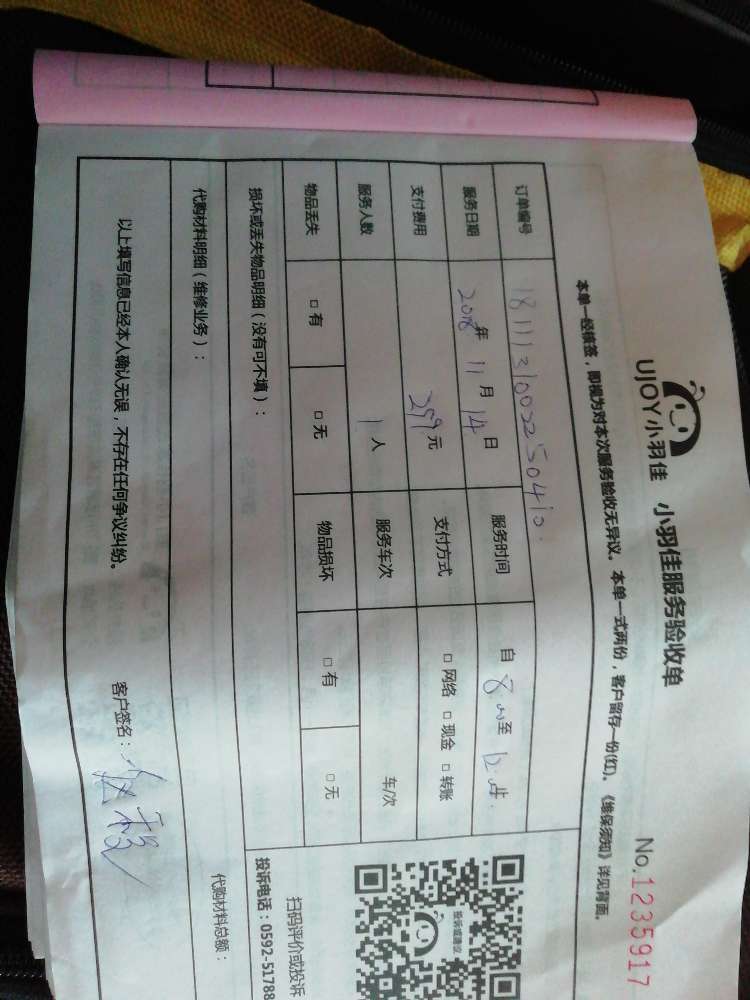 UJOY小羽佳 小羽佳服务验收单
No.1235917
本单一经核签，即视为对本次服务验收无异议。本单一式两份，客户留存一份(红)。《维保须知》详见背面。
订单编号 18111310022250410.
服务日期 2018年 11月 14日 服务时间 自 8:00至
支付费用 259元 支付方式 □网络 □现金 □转账
服务人数 1人 服务车次 车/次
物品丢失 □有 □无 物品损坏 □有 □无
损坏或丢失物品明细（没有可不填）：
投诉或建议
扫码评价或投诉
投诉电话：0592-51788
代购材料明细（维修业务）：
代购材料总额：
以上填写信息已经本人确认无误，不存在任何争议纠纷。 客户签名：